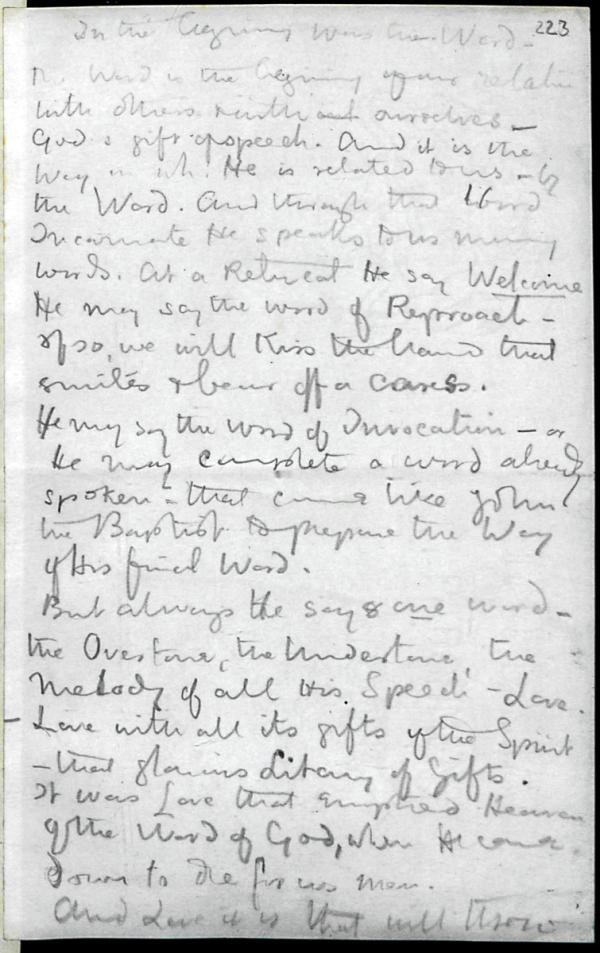 223
In the beginning was the Word -
The Word is the beginning of our relation
with others & with ourselves -
God's gift of speech. And it is the
Way in wh. He is related to us - by
the Word. And through that Word
Incarnate He speaks to us many
words. At a Retreat He say Welcome
He may say the word of Reproach -
if so, we will Kiss the hand that
smites & bear off a caress.
He may say the word of Invocation - or
He may complete a word already
spoken - that came like John
the Baptist to prepare the Way
of His final Word.
But always He says one word -
the Overtone, the Undertone, the
Melody of all His Speech - Love.
- Love with all its gifts of the Spirit
- that glorious Litany of Gifts.
It was Love that emptied Heaven
of the Word of God, when He came
down to die for us men.
And Love it is that will